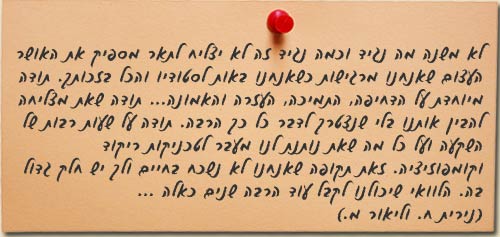 לא משנה מה נגיד וכמה נגיד זה לא יצליח לתאר מספיק את האושר
העצום שאנחנו מרגישות כשאנחנו באות לסטודיו והכל בזכותך. תודה
מיוחדת על הדחיפה, התמיכה, העזרה והאמונה... תודה שאת מצליחה
להבין אותנו בלי שנצטרך לדבר כל כך הרבה. תודה על שעות רבות של
השקעה ועל כל מה שאת נותנת לנו מעבר לטכניקות ריקוד
וקומפוזיציה. זאת תקופה שאנחנו לא נשכח בחיים ולך יש חלק גדול
בה. הלוואי שיכולנו לקבל עוד הרבה שנים כאלה ...
(נירית ח. וליאור מ.)